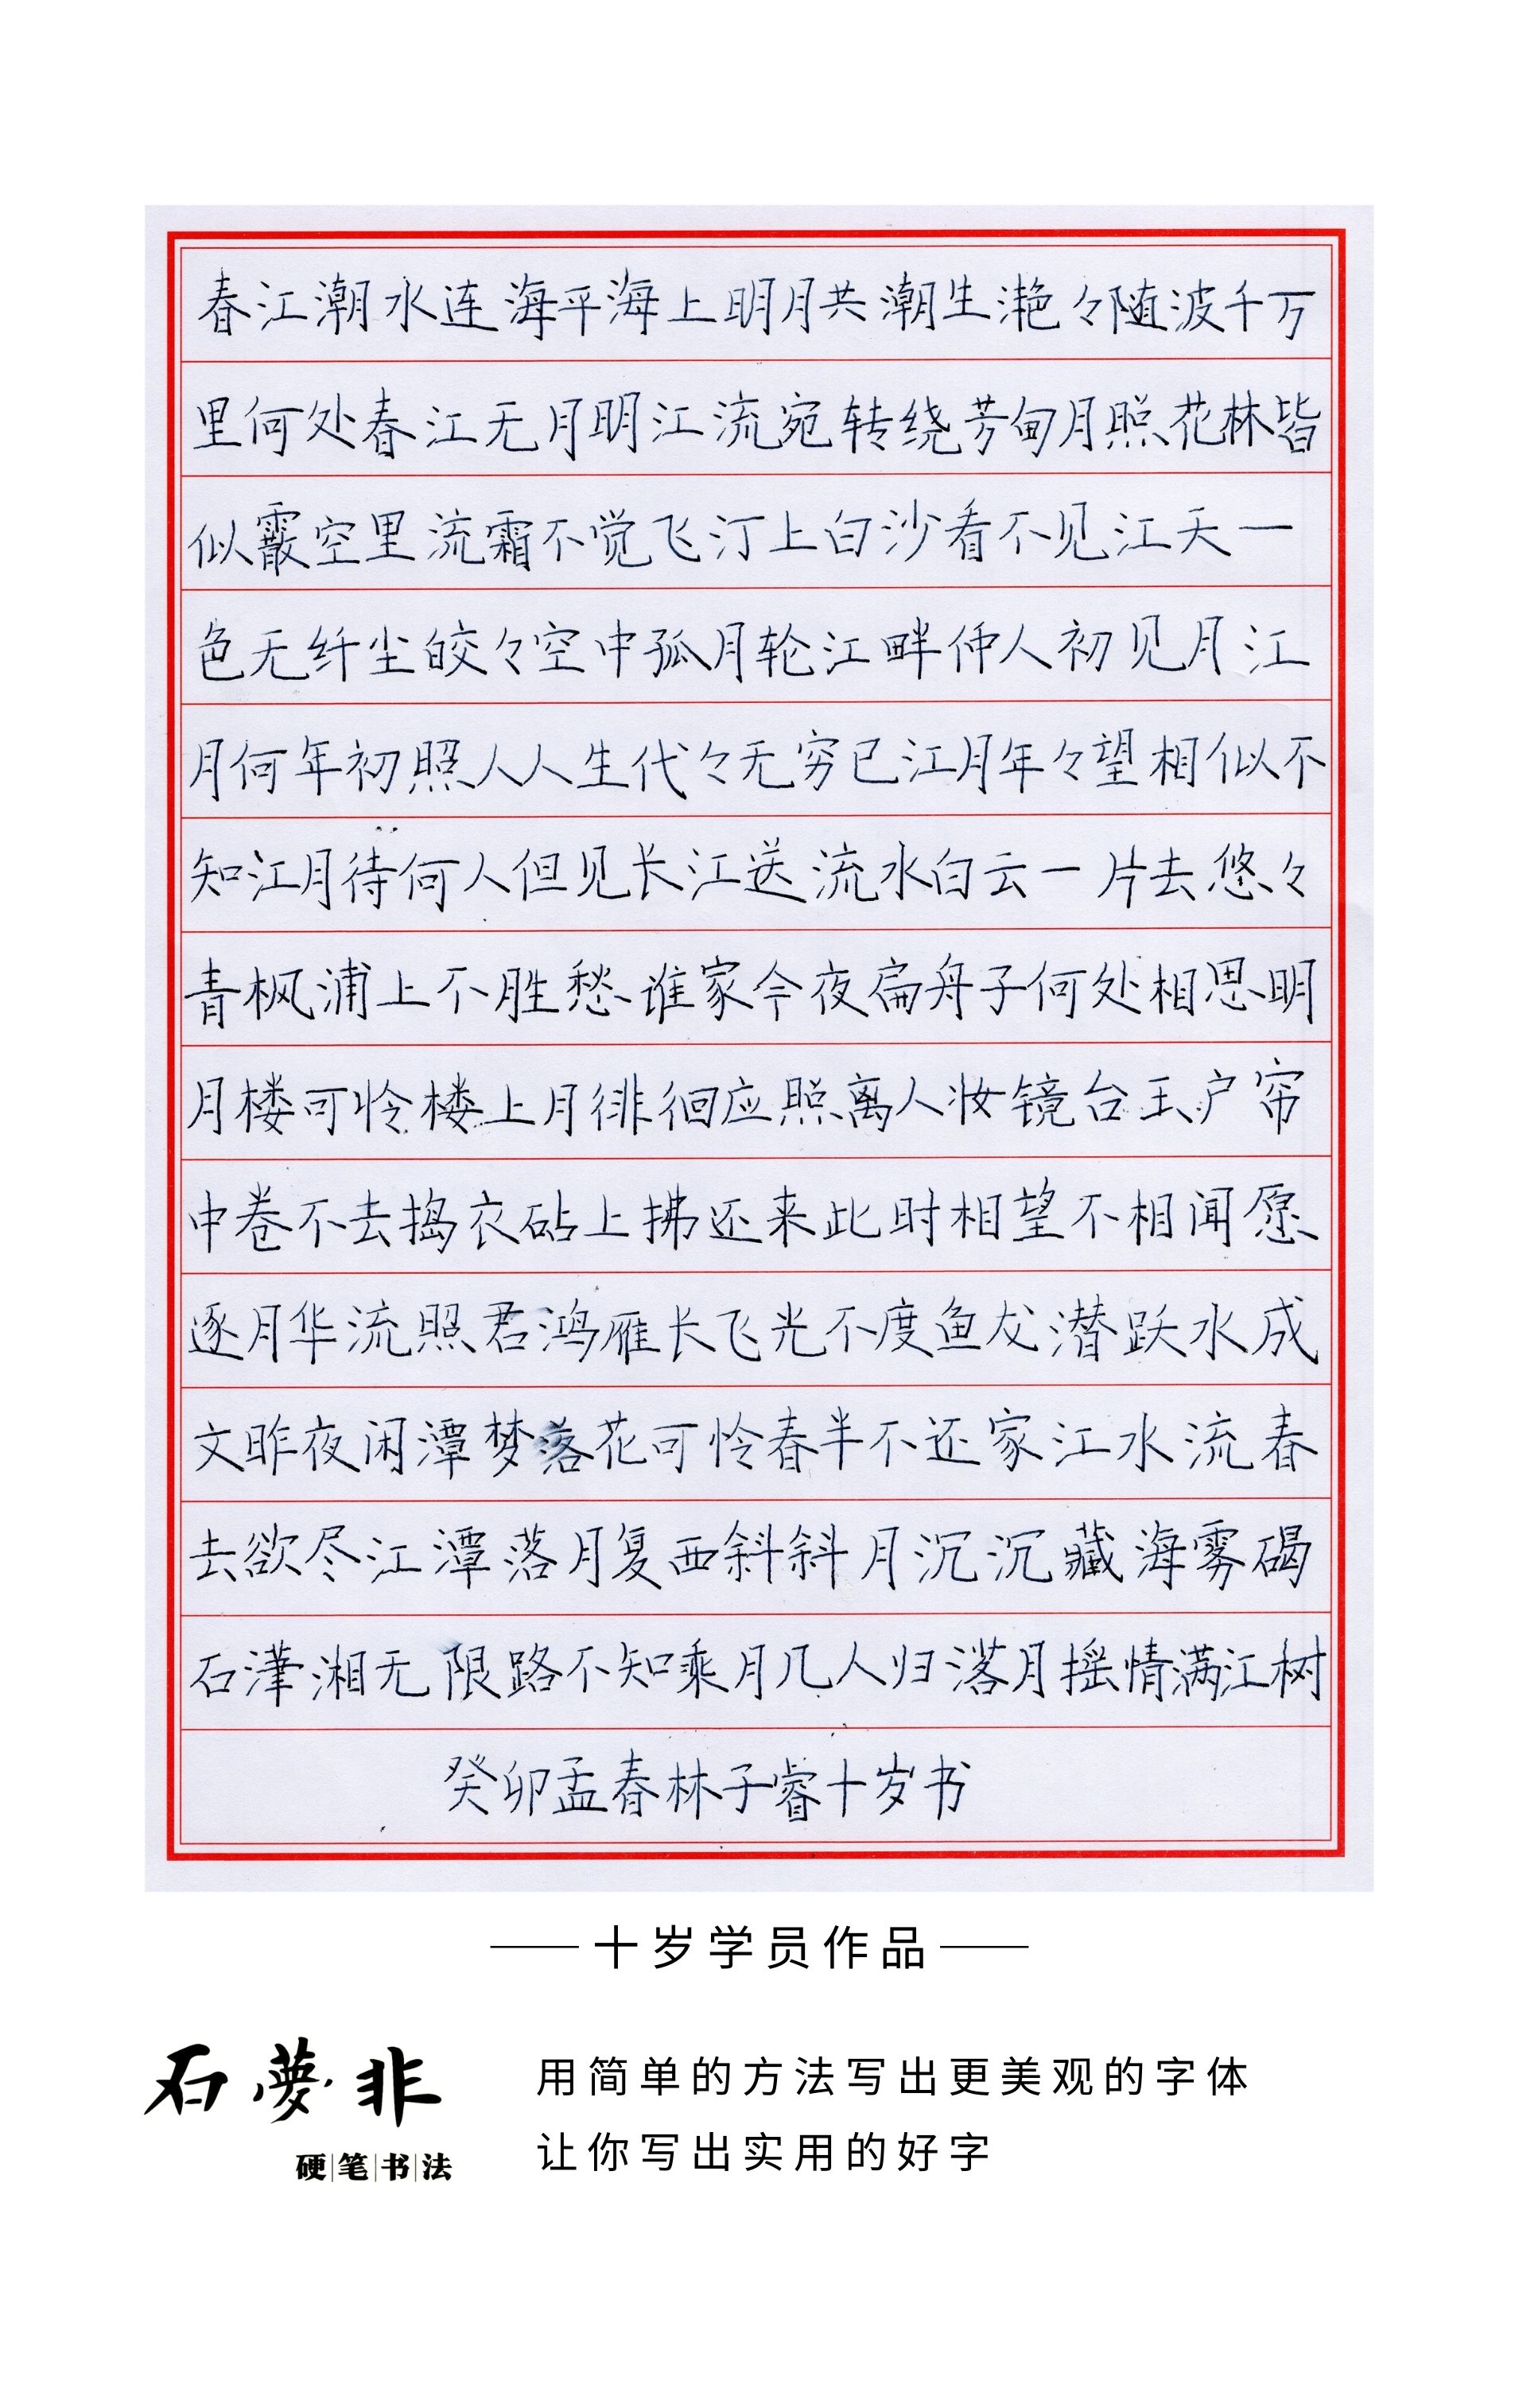 春江潮水连海平海上明月共潮生滟々随波千万
里何处春江无月明江流宛转绕芳甸月照花林皆
似霰空里流霜不觉飞汀上白沙看不见江天一
色无纤尘皎々空中孤月轮江畔仲人初见月江
月何年初照人人生代々无穷已江月年々望相似不
知江月待何人但见长江送流水白云一片去悠々
青枫浦上不胜愁谁家今夜扁舟子何处相思明
月楼可怜楼上月徘徊应照离人妆镜台玉户帘
中卷不去捣衣砧上拂还来此时相望不相闻愿
逐月华流照君鸿雁长飞光不度鱼龙潜跃水成
文昨夜闲潭梦落花可怜春半不还家江水流春
去欲尽江潭落月复西斜斜月沉沉藏海雾碣
石潇湘无限路不知乘月几人归落月摇情满江树
癸卯孟春林子睿十岁书
十岁学员作品
石夢非
硬笔书法
用简单的方法写出更美观的字体
让你写出实用的好字